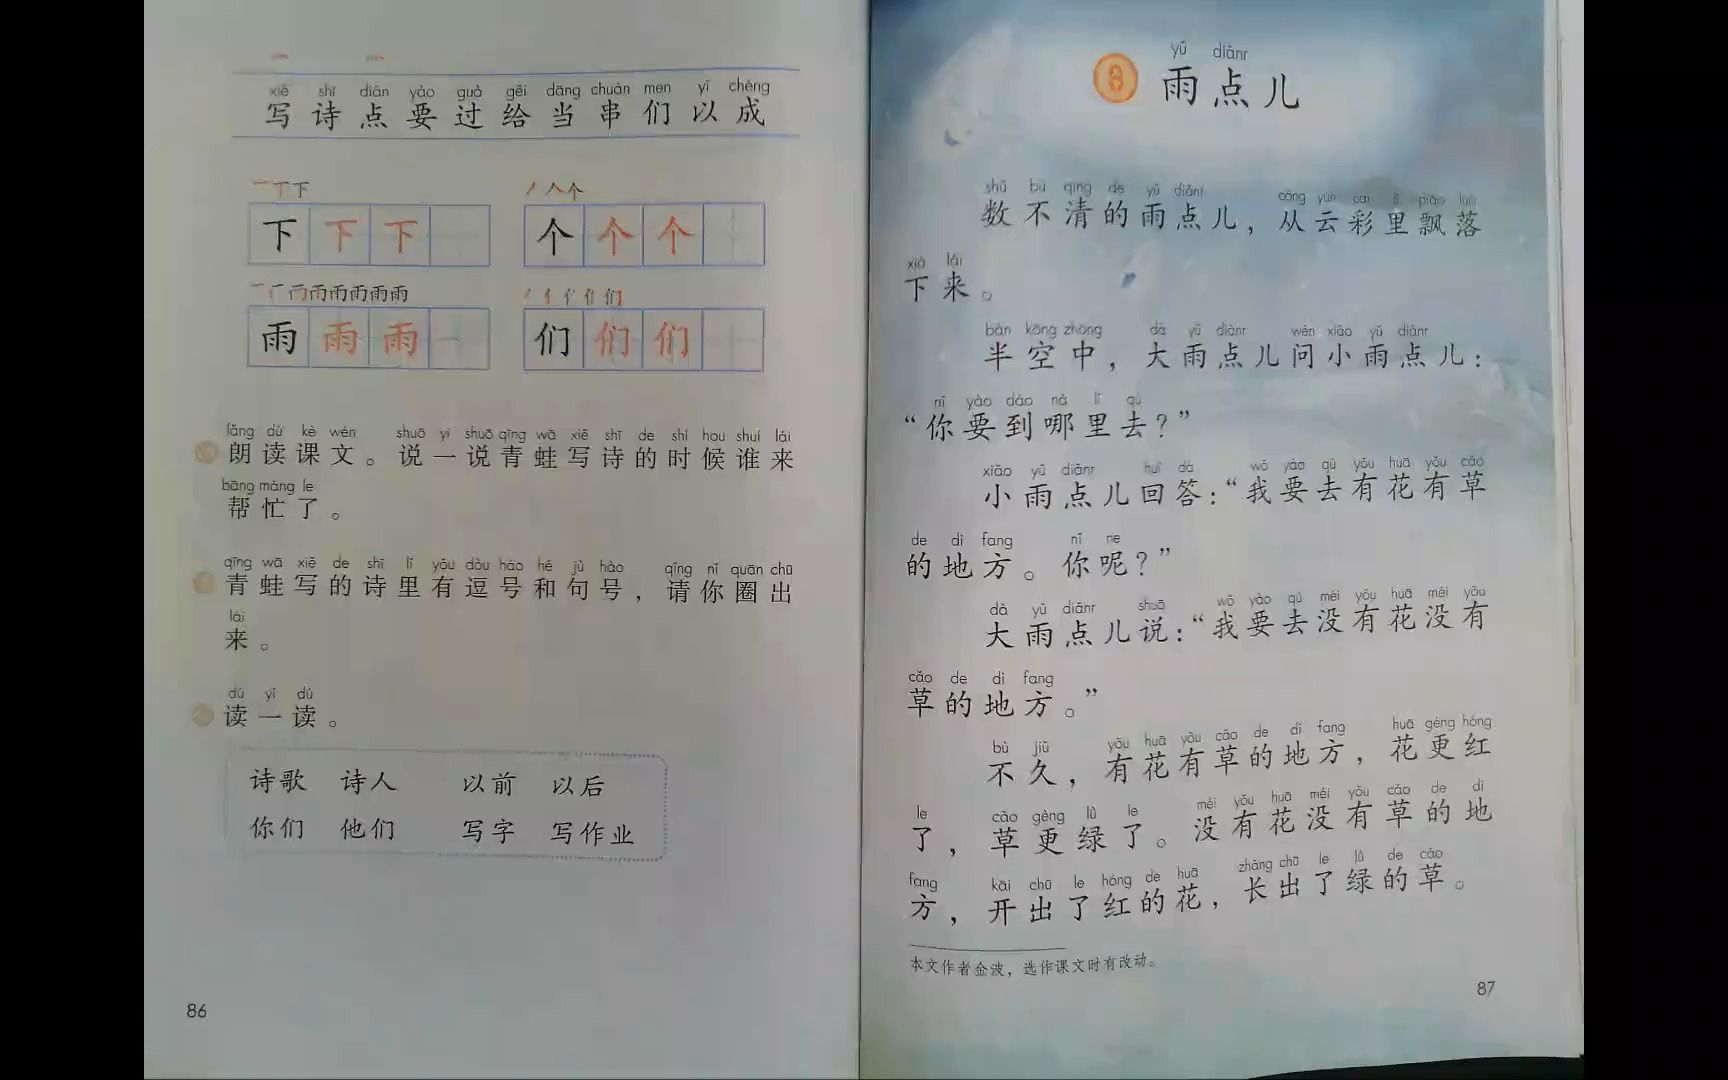 xiě shī diǎn yào guò gěi dāng chuàn men yǐ chéng
写诗点要过给当串们以成
下 下 下
个 个 个
雨 雨 雨
们 们 们
lǎng dú kè wén shuō yi shuō qīng wā xiě shī de shí hou shuí lái
朗读课文。说一说青蛙写诗的时候谁来
bāng máng le
帮忙了。
qīng wā xiě de shī lǐ yǒu dòu hào hé jù hào qǐng nǐ quān chū
青蛙写的诗里有逗号和句号，请你圈出
lái
来。
dú yi dú
读一读。
诗歌 诗人 以前 以后
你们 他们 写字 写作业
86
yǔ diǎnr
8 雨点儿
shǔ bù qīng de yǔ diǎnr cóng yún cai lǐ piāo luò
数不清的雨点儿，从云彩里飘落
xià lái
下来。
bàn kōng zhōng dà yǔ diǎnr wèn xiǎo yǔ diǎnr
半空中，大雨点儿问小雨点儿：
nǐ yào dào nǎ lǐ qù
“你要到哪里去？”
xiǎo yǔ diǎnr huí dá wǒ yào qù yǒu huā yǒu cǎo
小雨点儿回答：“我要去有花有草
de dì fang nǐ ne
的地方。你呢？”
dà yǔ diǎnr shuō wǒ yào qù méi yǒu huā méi yǒu
大雨点儿说：“我要去没有花没有
cǎo de dì fang
草的地方。”
bù jiǔ yǒu huā yǒu cǎo de dì fang huā gèng hóng
不久，有花有草的地方，花更红
le cǎo gèng lǜ le méi yǒu huā méi yǒu cǎo de dì
了，草更绿了。没有花没有草的地
fang kāi chū le hóng de huā zhǎng chū le lǜ de cǎo
方，开出了红的花，长出了绿的草。
本文作者金波，选作课文时有改动。
87